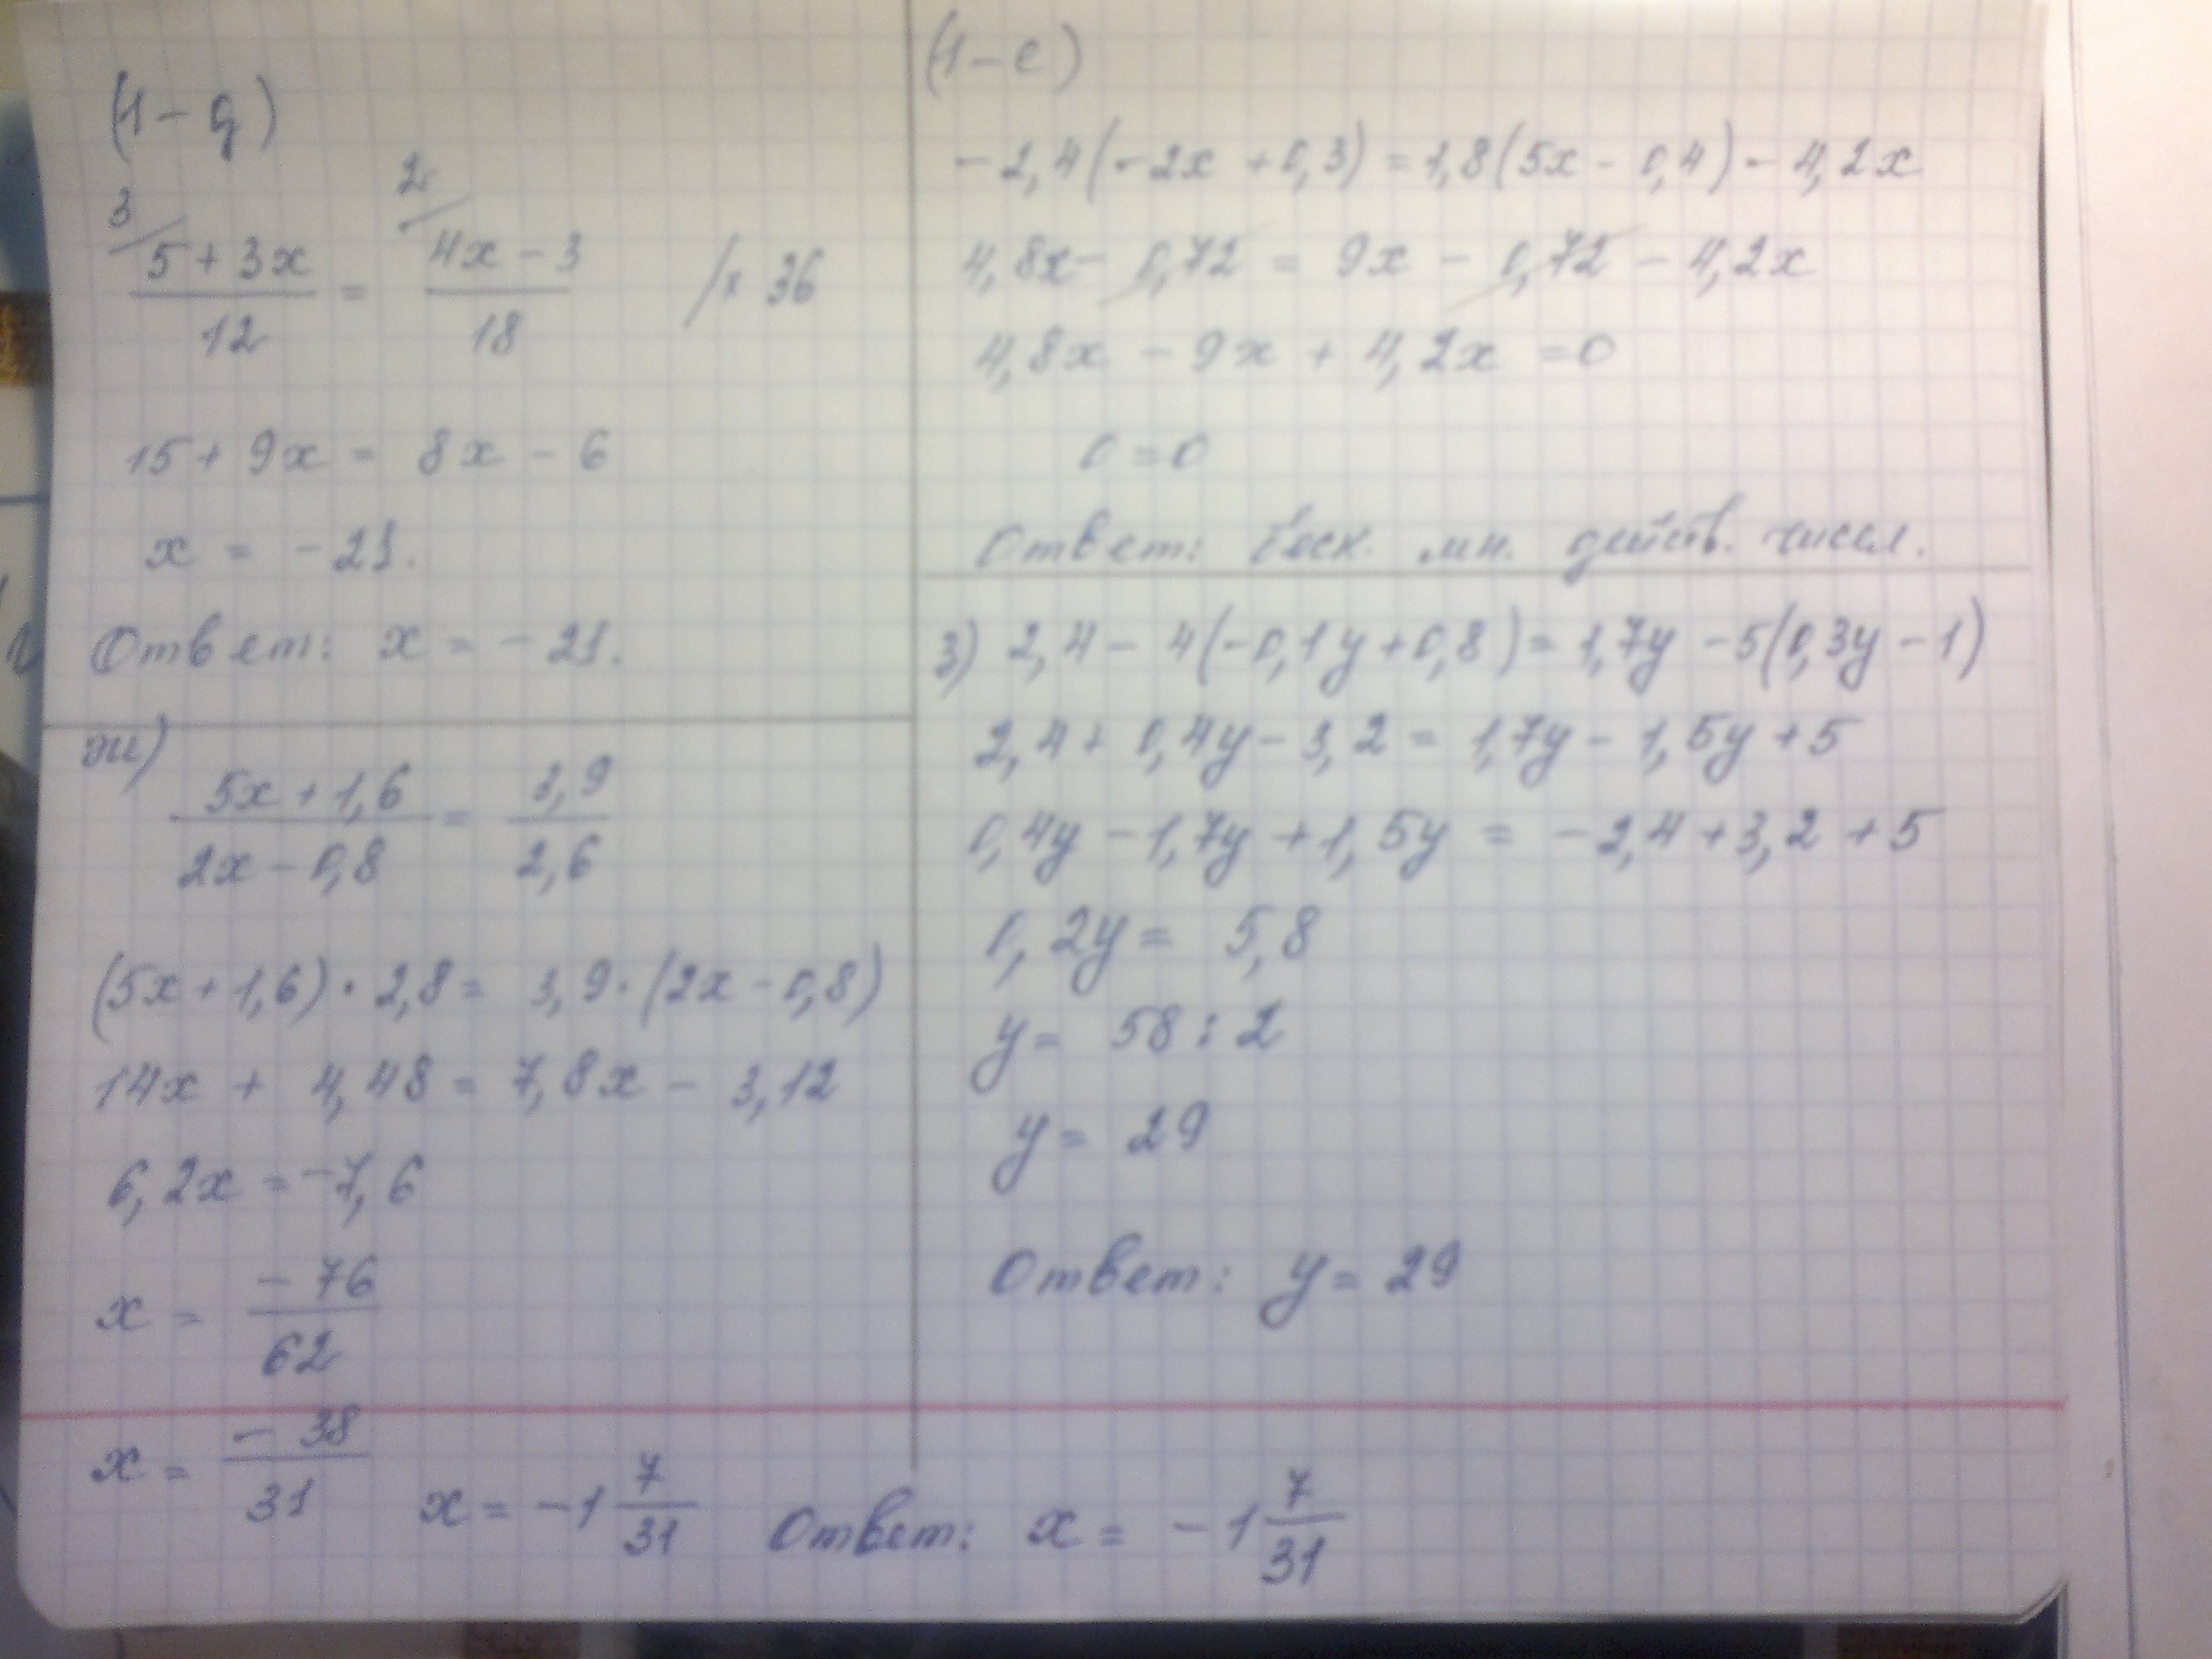 (1-д)
3/ 5+3x / 12 = 2/ 4x-3 / 18 /x 36
15 + 9x = 8x - 6
x = -21.
Ответ: x = -21.
ж)
5x+1,6 / 2x-0,8 = 3,9 / 2,6
(5x+1,6)·2,8 = 3,9·(2x-0,8)
14x + 4,48 = 7,8x - 3,12
6,2x = -7,6
x = -76 / 62
x = -38 / 31 x = -1 7/31 Ответ: x = -1 7/31
(1-е)
-2,4(-2x+0,3) = 1,8(5x-0,4) - 4,2x
4,8x - 0,72 = 9x - 0,72 - 4,2x
4,8x - 9x + 4,2x = 0
0 = 0
Ответ: беск. мн. действ. чисел.
з) 2,4 - 4(-0,1y+0,8) = 1,7y - 5(0,3y-1)
2,4 + 0,4y - 3,2 = 1,7y - 1,5y + 5
0,4y - 1,7y + 1,5y = -2,4 + 3,2 + 5
0,2y = 5,8
y = 58 : 2
y = 29
Ответ: y = 29